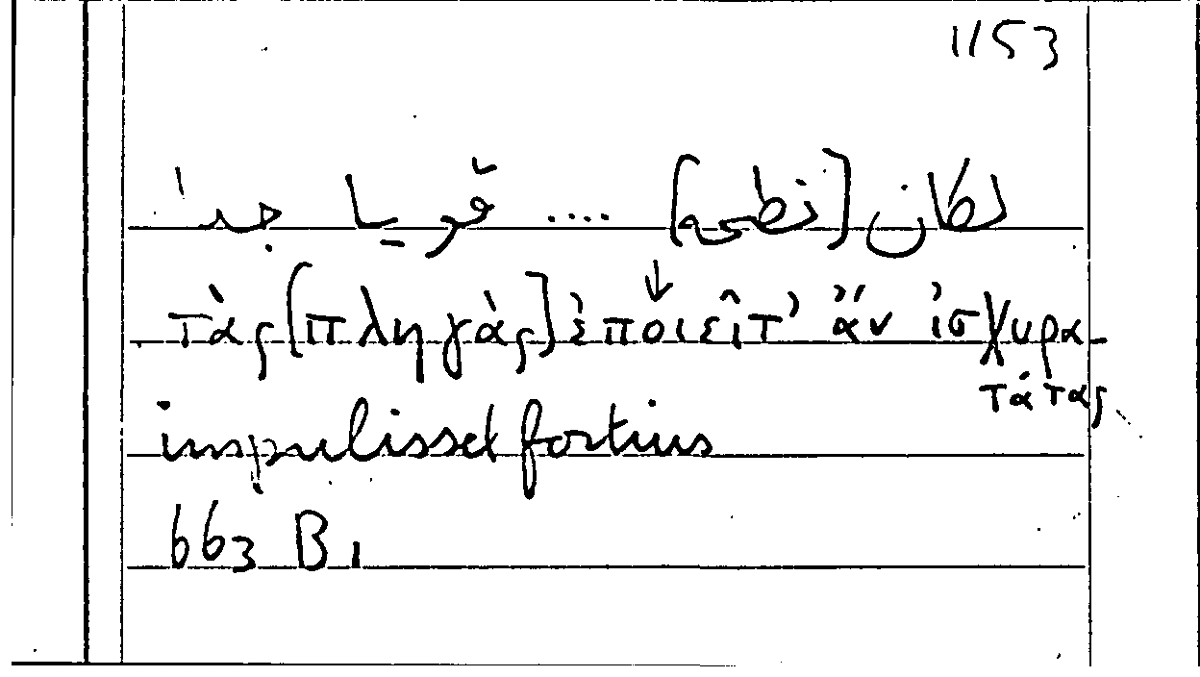 1153
لكان [نطحه] .... قويا جدا
τὰς [πληγὰς] ἐποιεῖτ' ἂν ἰσχυρα-
τάτας
impulisset fortius
663 B 1